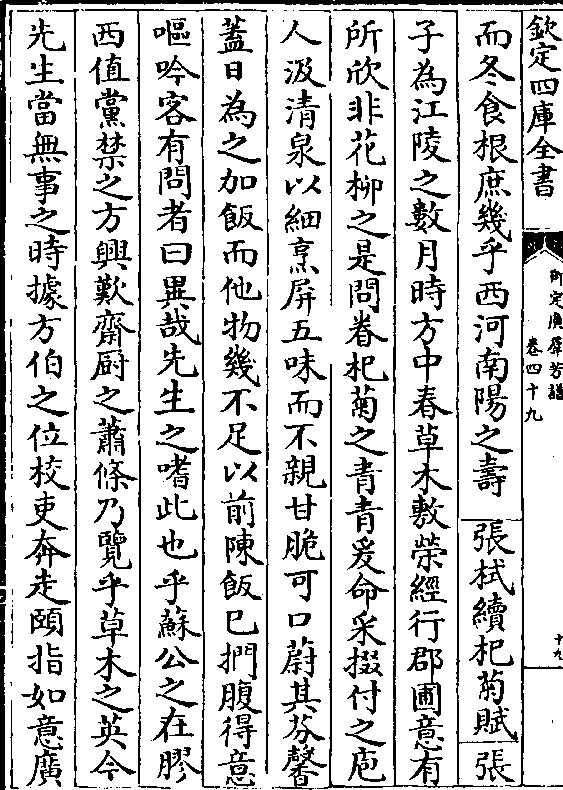 欽定四庫全書
御定廣羣芳譜
卷四十九
十九
而冬食根庶幾乎西河南陽之壽　張栻續杞菊賦　張
子為江陵之數月時方中春草木敷榮經行郡圃意有
所欣非花柳之是問眷杞菊之青青爰命采掇付之庖
人汲清泉以細烹屏五味而不親甘脆可口蔚其芬馨
蓋日為之加飯而他物幾不足以前陳飯已捫腹得意
嘔吟客有問者曰異哉先生之嗜此也乎蘇公之在膠
西值黨禁之方興歎齋厨之蕭條乃覽乎草木之英今
先生當無事之時據方伯之位校吏奔走頤指如意廣